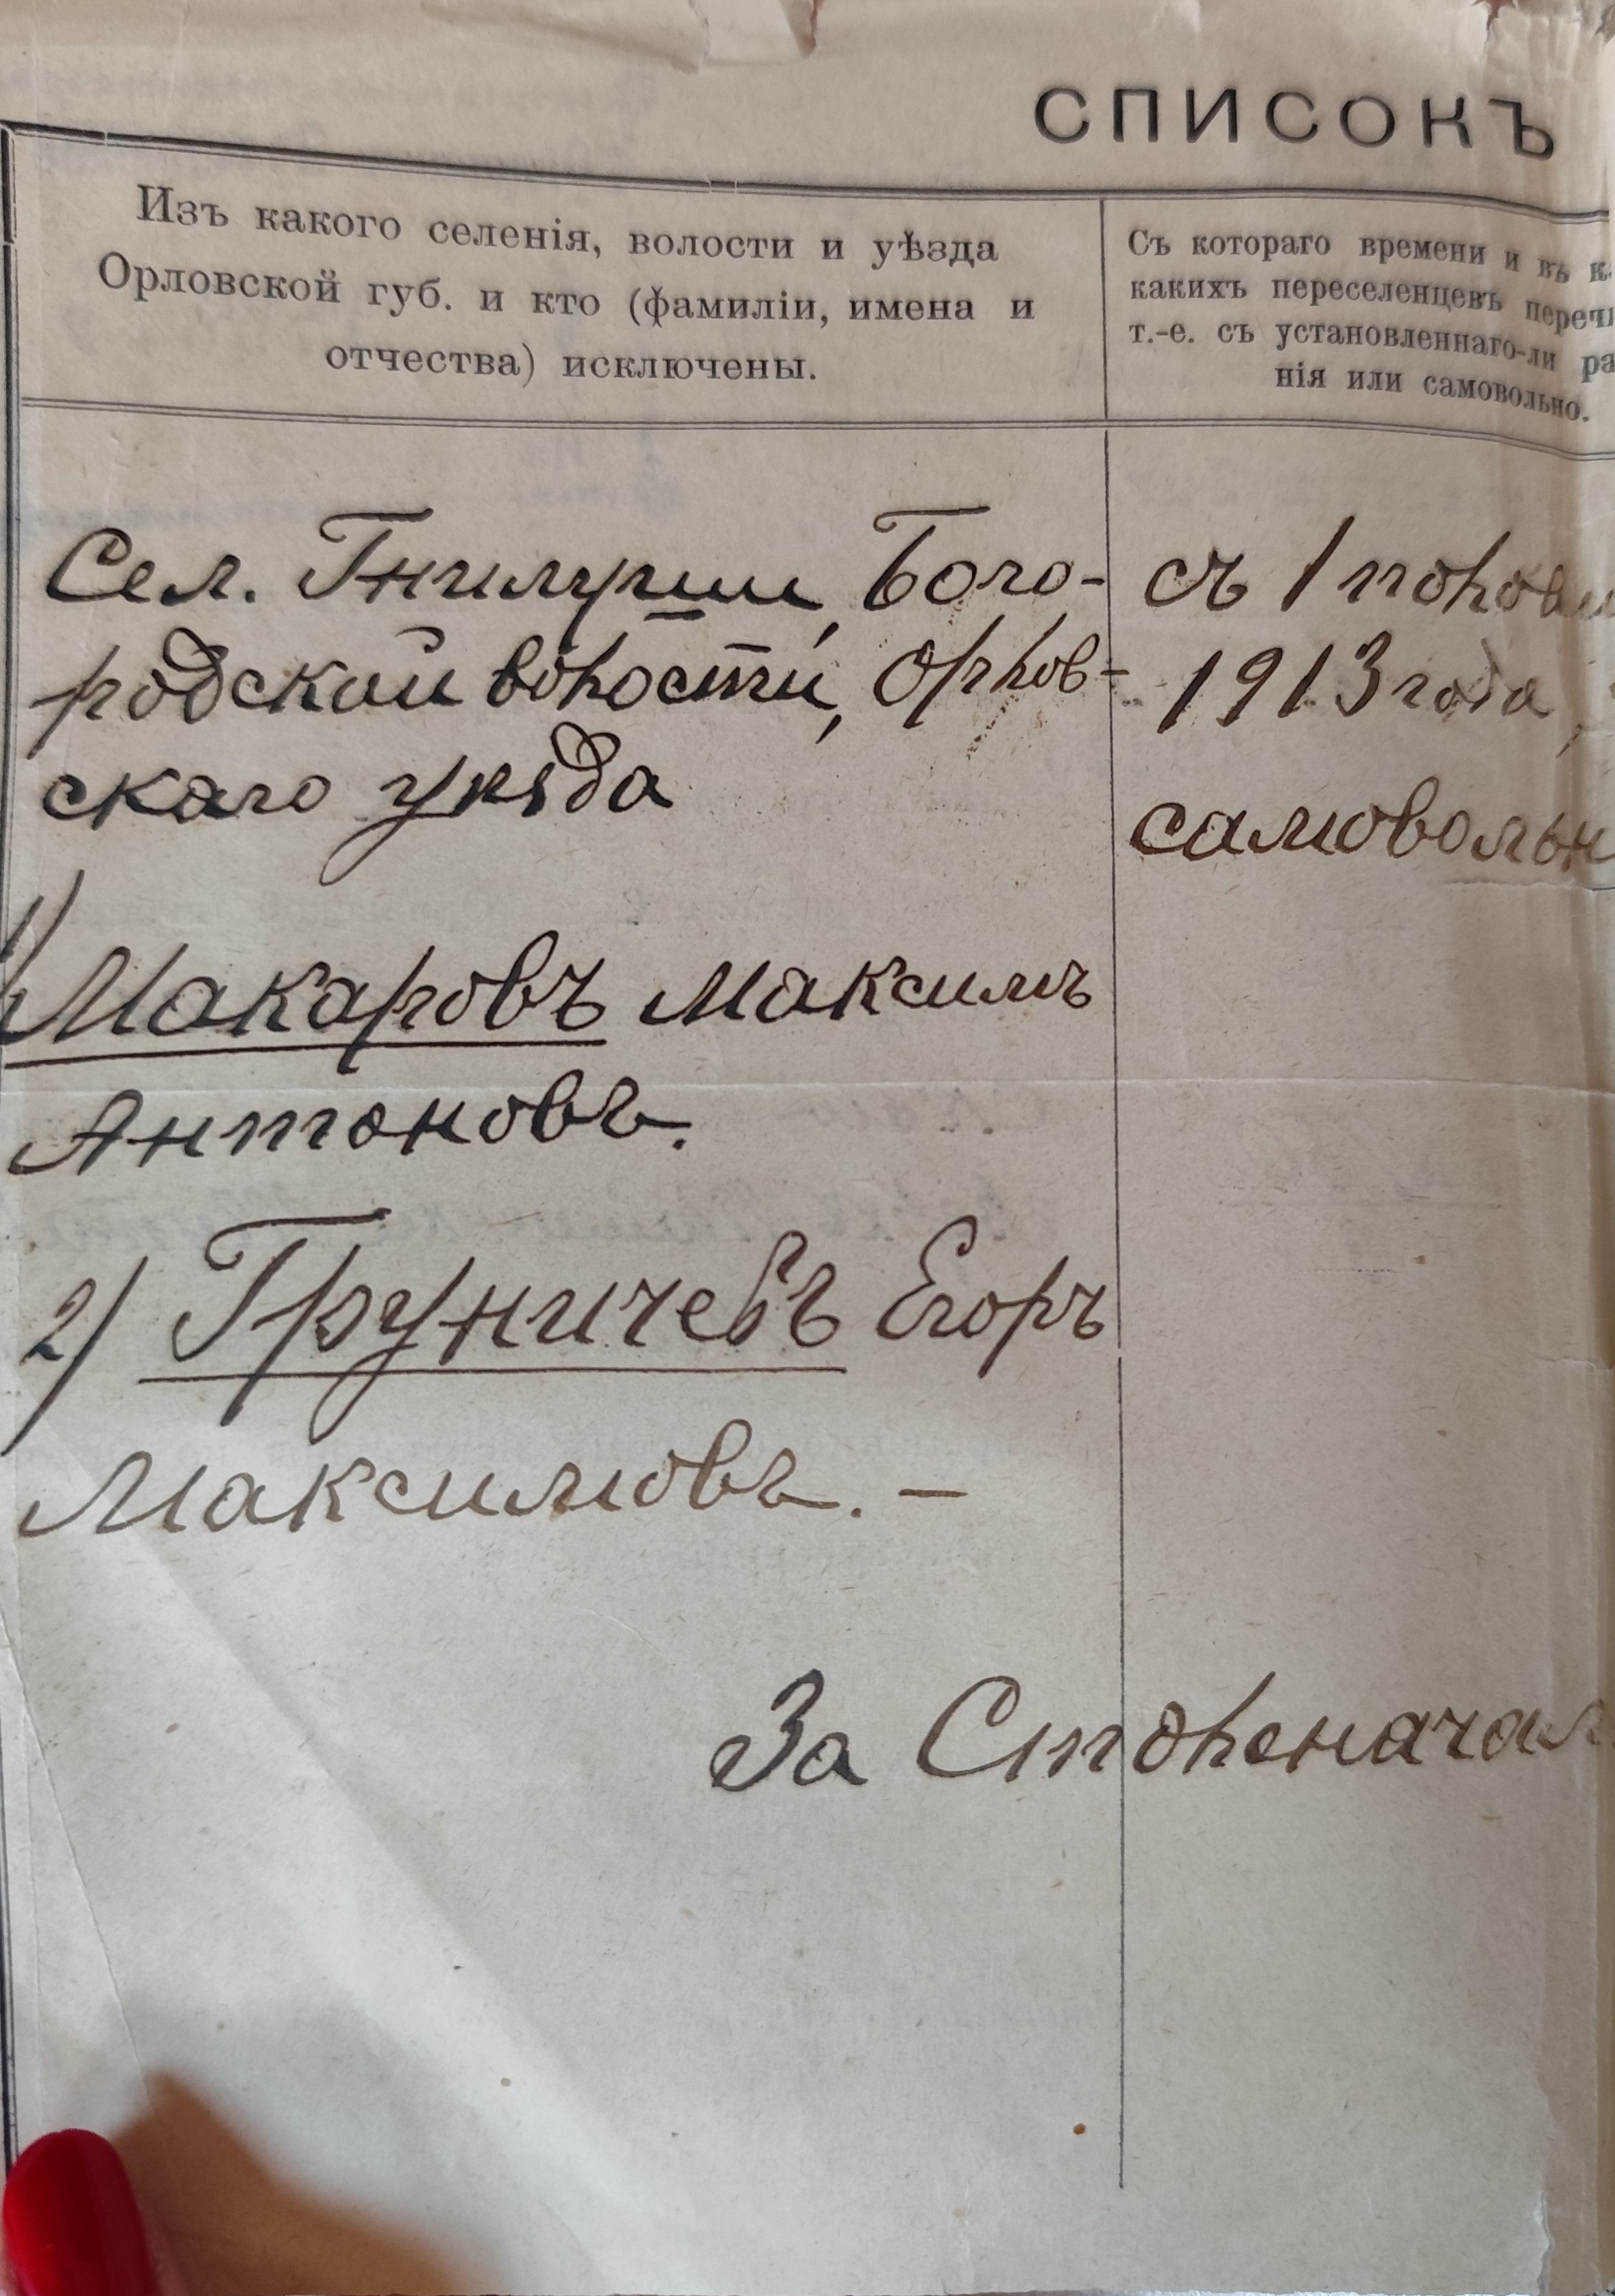 СПИСОКЪ
Изъ какого селенія, волости и уѣзда
Орловской губ. и кто (фамиліи, имена и
отчества) исключены.
Съ котораго времени и въ к
какихъ переселенцевъ переч
т.-е. съ установленнаго-ли ра
нія или самовольно.
Сел. Гнилуши, Бого-
родской волости, Орлов-
скаго уѣзда
съ 1 полови
1913 года,
самовольн
1) Макаровъ Максимъ
Антоновъ.
2) Груничевъ Егоръ
Максимовъ. —
За Столоначал